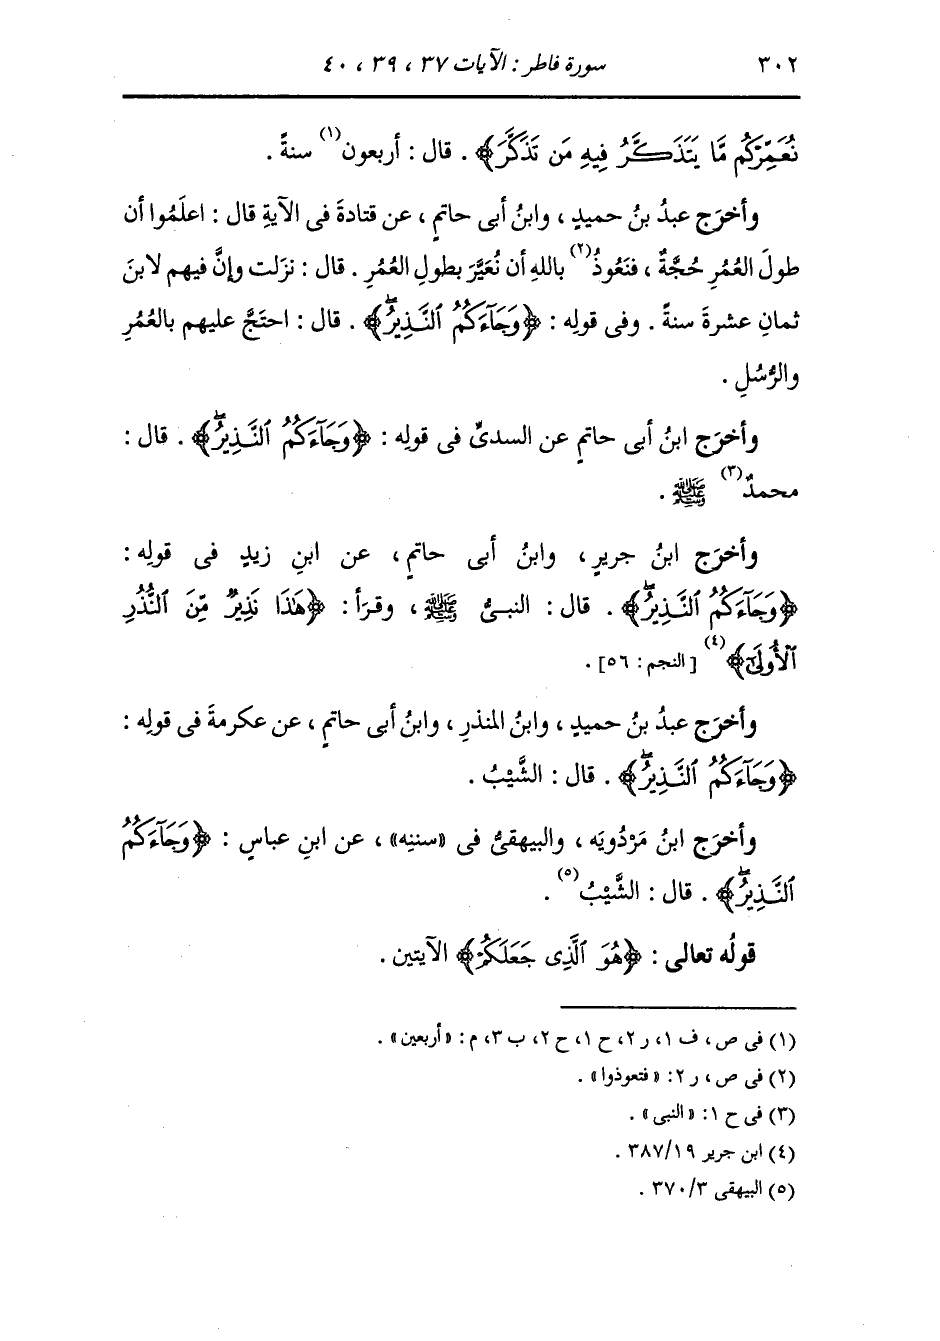 ٣٠٢ سورة فاطر : الآيات ٣٧ ، ٣٩ ، ٤٠
نُعَمِّرْكُم مَّا يَتَذَكَّرُ فِيهِ مَن تَذَكَّرَ﴾ . قال : أربعون(١) سنةً .
وأخرَج عبدُ بنُ حميدٍ ، وابنُ أبى حاتمٍ ، عن قتادةَ فى الآيةِ قال : اعلَمُوا أن
طولَ العُمُرِ حُجَّةٌ ، فنَعُوذُ(٢) باللهِ أن نُعَيَّرَ بطولِ العُمُرِ . قال : نزَلت وإنَّ فيهم لابنَ
ثمانِ عشرةَ سنةً . وفى قولِه : ﴿وَجَآءَكُمُ ٱلنَّذِيرُۖ﴾ . قال : احتَجَّ عليهم بالعُمُرِ
والرُّسُلِ .
وأخرَج ابنُ أبى حاتمٍ عن السدىِّ فى قولِه : ﴿وَجَآءَكُمُ ٱلنَّذِيرُۖ﴾ . قال :
محمدٌ(٣) ﷺ .
وأخرَج ابنُ جريرٍ ، وابنُ أبى حاتمٍ ، عن ابنِ زيدٍ فى قولِه :
﴿وَجَآءَكُمُ ٱلنَّذِيرُۖ﴾ . قال : النبىُّ ﷺ ، وقرَأ : ﴿هَٰذَا نَذِيرٌ مِّنَ ٱلنُّذُرِ
ٱلْأُولَىٰٓ﴾(٤) [النجم : ٥٦] .
وأخرَج عبدُ بنُ حميدٍ ، وابنُ المنذرِ ، وابنُ أبى حاتمٍ ، عن عكرمةَ فى قولِه :
﴿وَجَآءَكُمُ ٱلنَّذِيرُۖ﴾ . قال : الشَّيْبُ .
وأخرَج ابنُ مَرْدُويَه ، والبيهقىُّ فى «سننِه» ، عن ابنِ عباسٍ : ﴿وَجَآءَكُمُ
ٱلنَّذِيرُۖ﴾ . قال : الشَّيْبُ(٥) .
قولُه تعالى : ﴿هُوَ ٱلَّذِى جَعَلَكُمْ﴾ الآيتين .
(١) فى ص ، ف ١ ، ر ٢ ، ح ١ ، ح ٢ ، ب ٣ ، م : «أربعين» .
(٢) فى ص ، ر ٢ : «فتعوذوا» .
(٣) فى ح ١ : «النبى» .
(٤) ابن جرير ٣٨٧/١٩ .
(٥) البيهقى ٣٧٠/٣ .